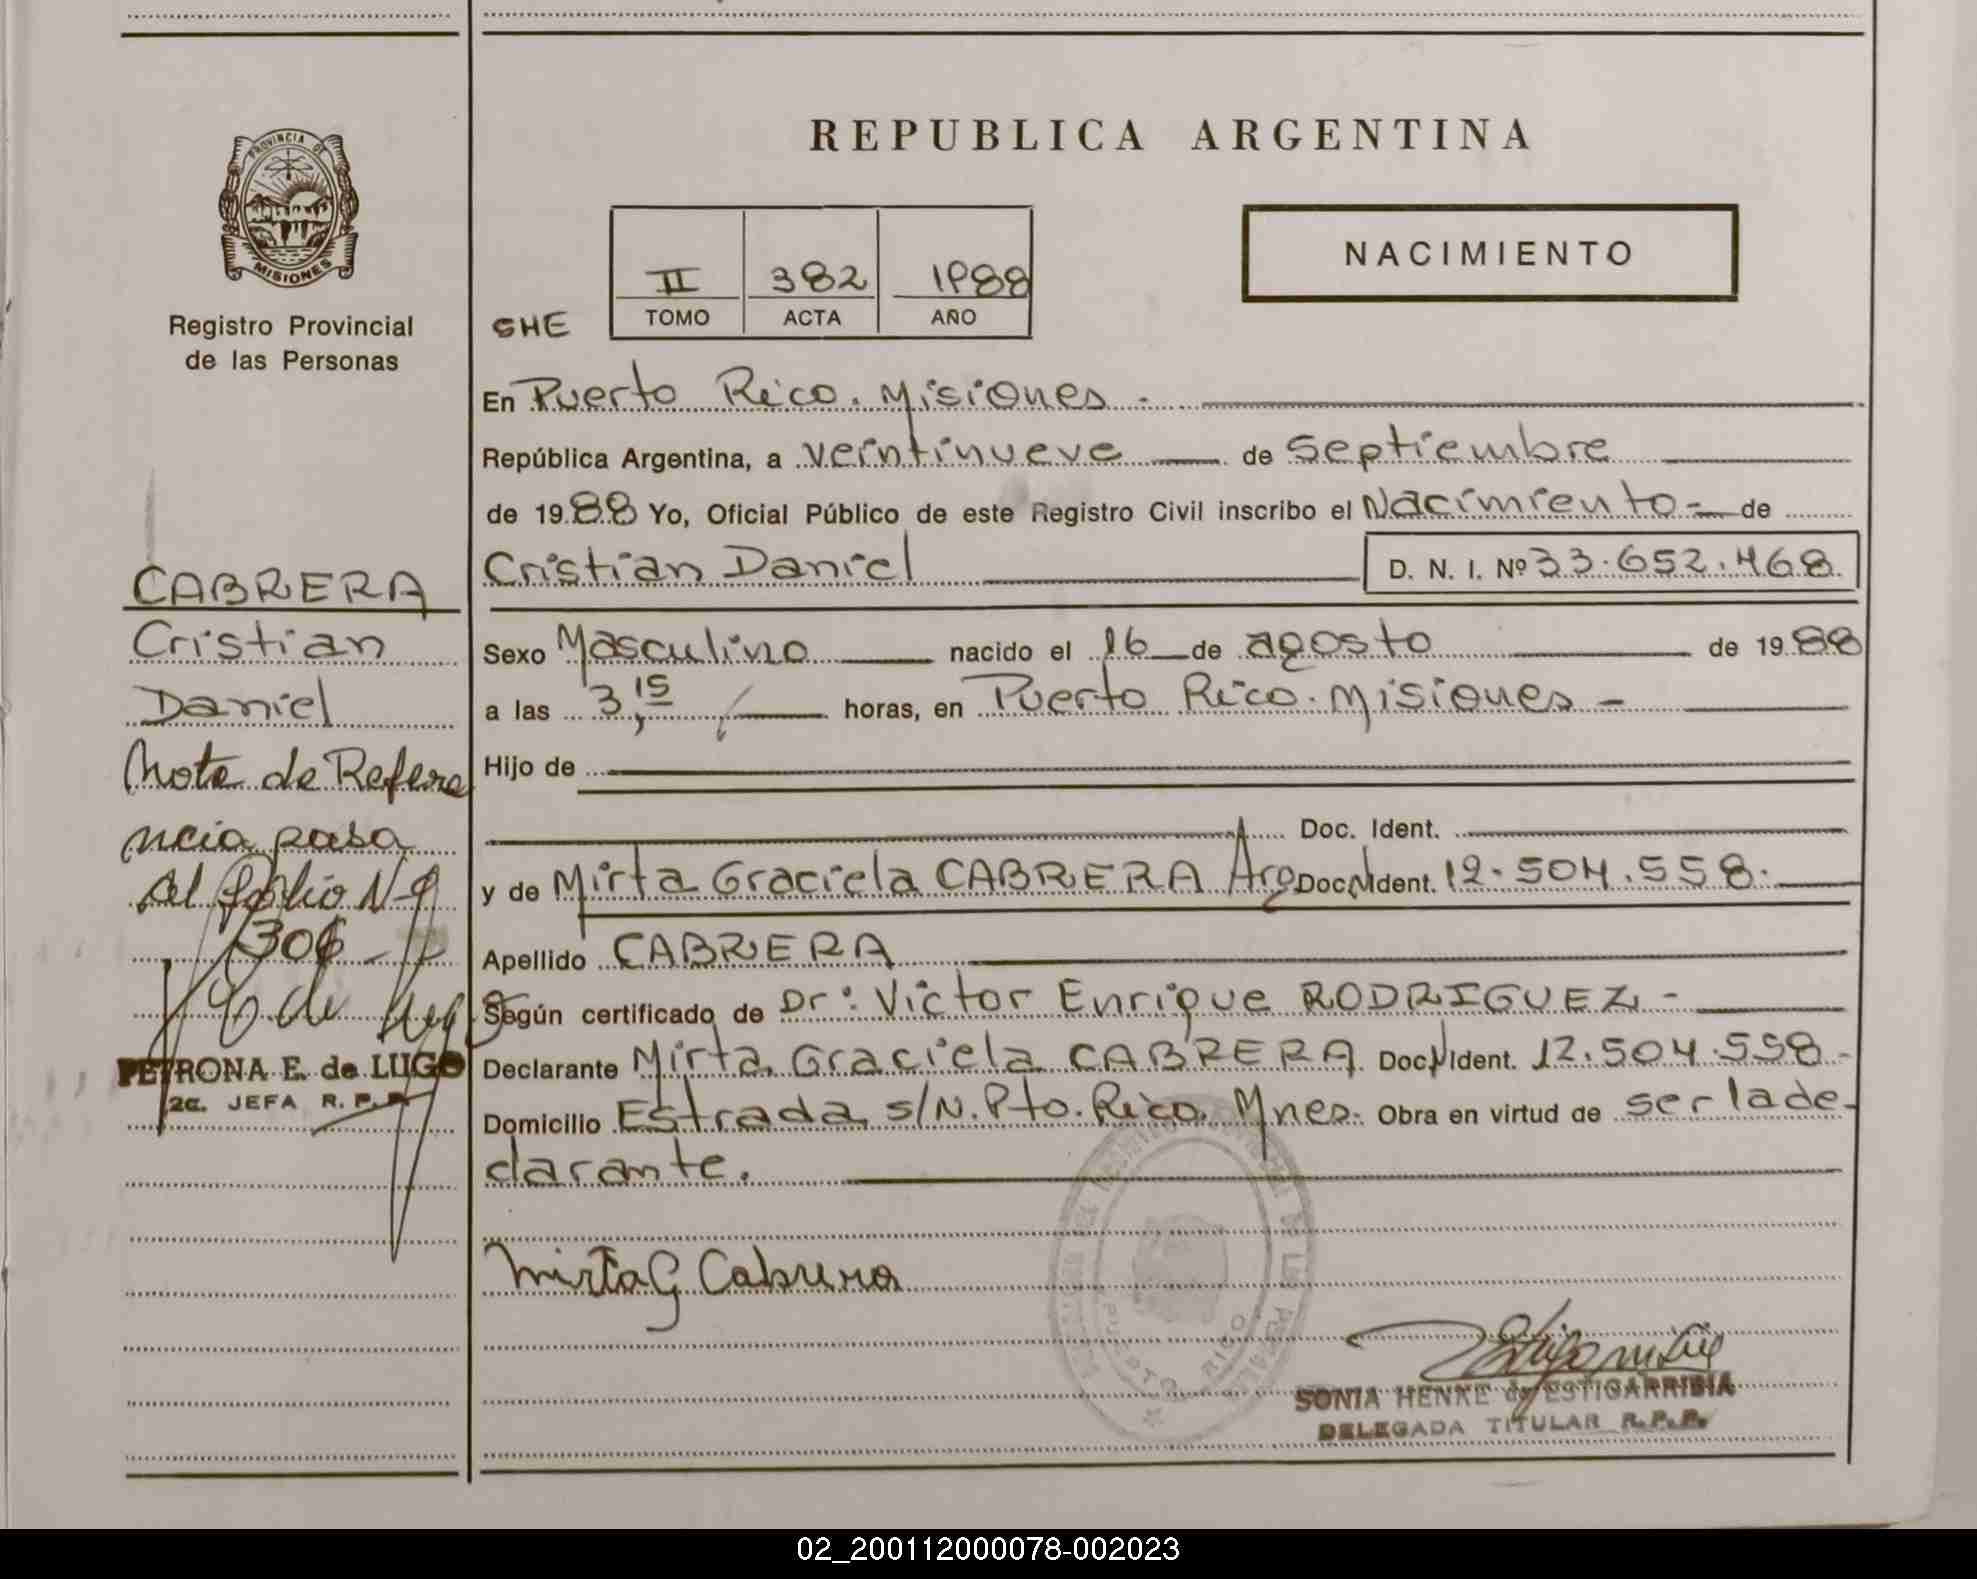 REPUBLICA ARGENTINA
PROVINCIA DE
MISIONES
Registro Provincial
de las Personas
SHE
II 382 1988
TOMO ACTA AÑO
NACIMIENTO
En Puerto Rico. Misiones.-
República Argentina, a veintinueve de septiembre
de 1988 Yo, Oficial Público de este Registro Civil inscribo el Nacimiento- de
Cristian Daniel D. N. I. Nº 33.652.468
Sexo Masculino nacido el 16 de agosto de 1988
a las 3,15 horas, en Puerto Rico. Misiones -
Hijo de
Doc. Ident.
y de Mirta Graciela CABRERA Arg Doc. N Ident. 12.504.558.
Apellido CABRERA
Según certificado de Dr: Victor Enrique RODRIGUEZ -
Declarante Mirta Graciela CABRERA Doc N Ident. 12.504.558-
Domicilio Estrada s/N. Pto. Rico. Mnes. Obra en virtud de ser la de-
clarante.
Mirta G Cabrera
PUERTO RICO
SONIA HENKE de ESTIGARRIBIA
DELEGADA TITULAR R.P.P.
CABRERA
Cristian
Daniel
Nota de Refere
ncia pasa
al folio Nº
306-
PETRONA E. de LUGO
2a. JEFA R. P. P.
02_200112000078-002023